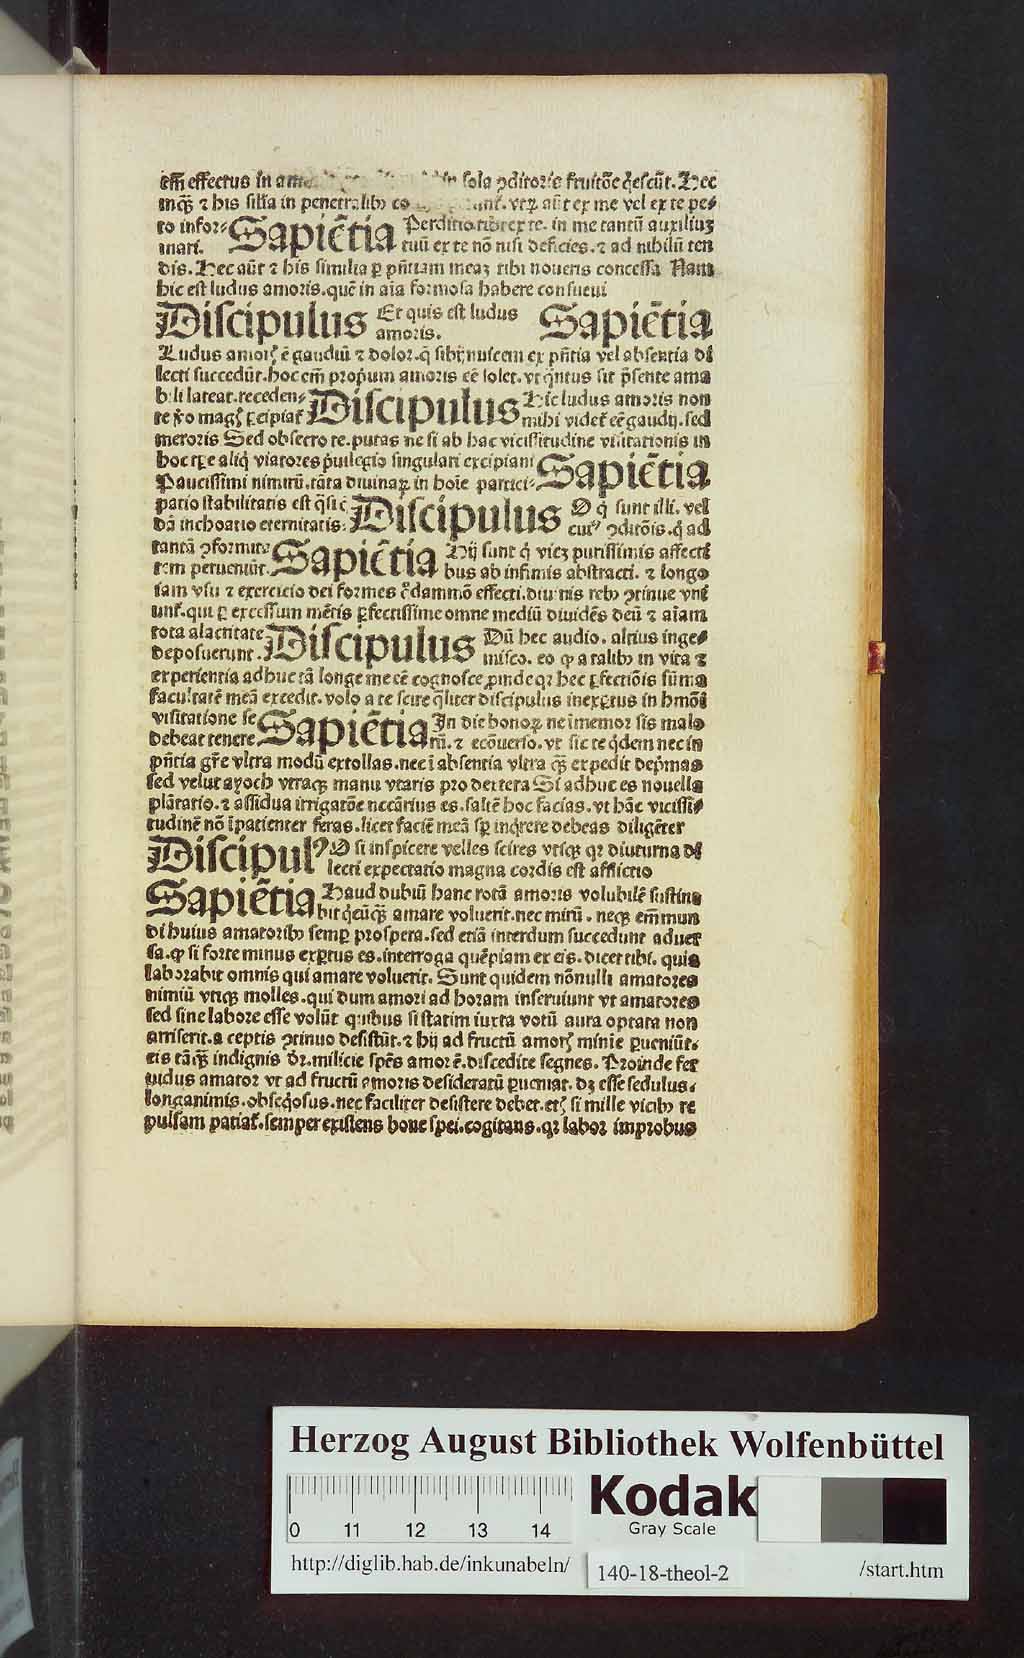 em̄ effectus in in sola ꝯditoris fruitōe q̇escūt. Hec
inq̄ꝫ ⁊ his silia in penetralibꝰ vtꝝ aūt ex me vel ex te pe⸗
to infor⸗ Sapiētia Perditio tibi ex te. in me tantū auxiliuꝫ
mari. tuū ex te nō nisi deficies. ⁊ ad nihilū ten
dis. Hec aūt ⁊ his similia ꝑ pn̄tiam meaꝫ tibi noueris concessa Nam
hic est ludus amoris. quē in aīa formosa habere consueui
Discipulus Et quis est ludus Sapiētia
amoris.
Ludus amorꝭ ē gaudiū ⁊ dolor. q̇ sibijnuicem ex pn̄tia vel absentia di
lecti succedūt. hoc em̄ propūm amoris eē solet. vt q̄ntus sit p̄sente ama
bili lateat. receden⸗ Discipulus Hic ludus amoris non
te v̓o magꝭ ꝑcipiat᷑ mihi videt᷑ eē gaudij. sed
meroris Sed obsecro te. putas ne si ab hac vicissitudine visitationis in
hoc tꝑe aliq̇ viatores p̓uilegio singulari excipiant Sapiētia
Paucissimi nimirū. tāta diuinaꝝ in hoīe partici⸗
patio stabilitatis est q̄si ē Discipulus O q̇ sunt illi. vel
dā inchoatio eternitatis. cuiꝰ ꝯditōis. q̇ ad
tantā ꝯformita Sapiētia Hij sunt q̇ vicꝫ purissimis affecti
tem peruenūt. bus ab infimis abstracti. ⁊ longo
iam vsu ⁊ exercicio dei formes q̇dammō effecti. diuinis rebꝰ ꝯtinue vni
unt᷑. qui ꝑ excessum mētis ꝑfectissime omne mediū diuidēs deū ⁊ aīam
tota alacritate Discipulus Dū hec audio. altius inge⸗
deposuerunt. misco. eo ꝙ a talibꝰ in vita ⁊
experientia adhuc tā longe me eē cognosce ꝓinde qꝛ hec ꝑfectiōis sūma
facultatē meā excedit. volo a te scire q̄liter discipulus inexꝑtus in hmōi
visitatione se Sapiētia In die bonoꝝ ne īmemor sis malo
debeat tenere rū. ⁊ ecōuerso. vt sic te q̇dem nec in
pn̄tia gr̄e vltra modū extollas. nec ī absentia vltra q̄ꝫ expedit dep̓mas
sed velut ayoch vtraqꝫ manu vtaris pro dextera Si adhuc es nouella
plātatio. ⁊ assidua irrigatōe necc̄arius es. saltē hoc facias. vt hāc vicissi⸗
tudinē nō īpatienter feras. licet faciē meā sꝑ inq̇rere debeas diligēter
Discipulꝰ O si inspicere velles scires vtiqꝫ qꝛ diuturna di
lecti expectatio magna cordis est afflictio
Sapiētia Haud dubiū hanc rotā amoris volubilē sustine
bit q̇cūqꝫ amare voluerit. nec mirū. neqꝫ em̄ mun
di huius amatoribꝰ semꝑ prospera. sed etiā interdum succedunt aduer
sa. ꝙ si forte minus exꝑtus es. interroga quēpiam ex eis. dicet tibi. quia
laborabit omnis qui amare voluerit. Sunt quidem nōnulli amatores
nimiū vtiqꝫ molles. qui dum amori ad horam inseruiunt vt amatores
sed sine labore esse volūt quibus si statim iuxta votū aura optata non
arriserit. a ceptis ꝯtinuo desistūt. ⁊ hij ad fructū amorꝭ minīe ꝑueniūt.
eis tāq̄ꝫ indignis dr̄. milicie spēs amor ē. discedite segnes. Proinde fer
uidus amator vt ad fructū amoris desideratū ꝑueniat. dꝫ esse sedulus.
longanimis. obseq̇osus. nec faciliter desistere debet. etꝭ si mille vicibꝰ re
pulsam patiat᷑. semper existens bone spei. cogitans. qꝛ labor improbus
Herzog August Bibliothek Wolfenbüttel
0 11 12 13 14
Kodak
Gray Scale
http://diglib.hab.de/inkunabeln/ 140-18-theol-2 /start.htm